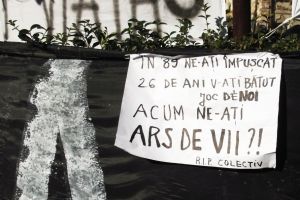 ÎN 89 NE-AȚI ÎMPUȘCAT
26 DE ANI V-AȚI BĂTUT
JOC DE NOI
ACUM NE-AȚI
ARS DE VII?!
R.I.P. COLECTIV